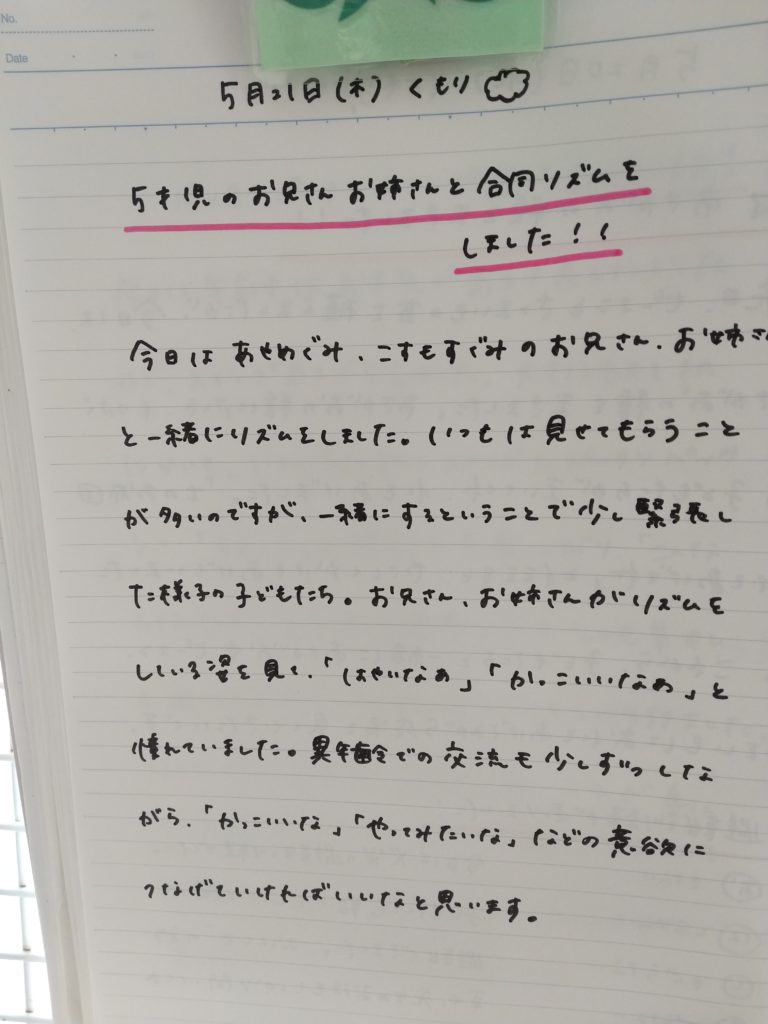 No.
Date
5月21日(木) くもり
5才児のお兄さんお姉さんと合同リズムを
しました!!
今日は あせめぐみ、こすもすぐみのお兄さん、お姉さ
と一緒にリズムをしました。いつもは見せてもらうこと
が多いのですが、一緒にするということで少し緊張し
た様子の子どもたち。お兄さん、お姉さんがリズムを
している姿を見て、「はやいなぁ」「かっこいいなぁ」と
憧れていました。異年齢での交流も少しずつしな
がら、「かっこいいな」「やってみたいな」などの意欲に
つなげていければいいなと思います。